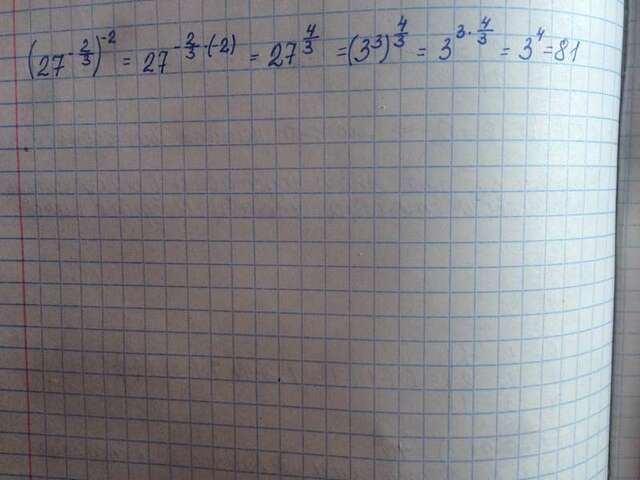 (27^{-\frac{2}{3}})^{-2} = 27^{-\frac{2}{3}·(-2)} = 27^{\frac{4}{3}} = (3^3)^{\frac{4}{3}} = 3^{3·\frac{4}{3}} = 3^4 = 81